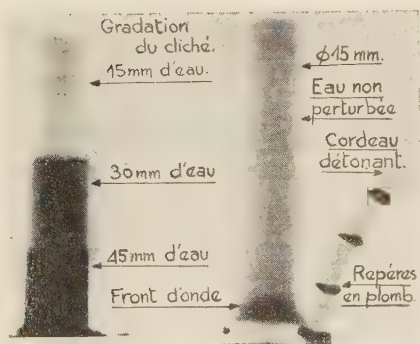 Gradation
du cliché.
15mm d'eau.
30mm d'eau
45mm d'eau
Front d'onde
φ15 mm.
Eau non
perturbée
Cordeau
détonant.
Repéres
en plomb.